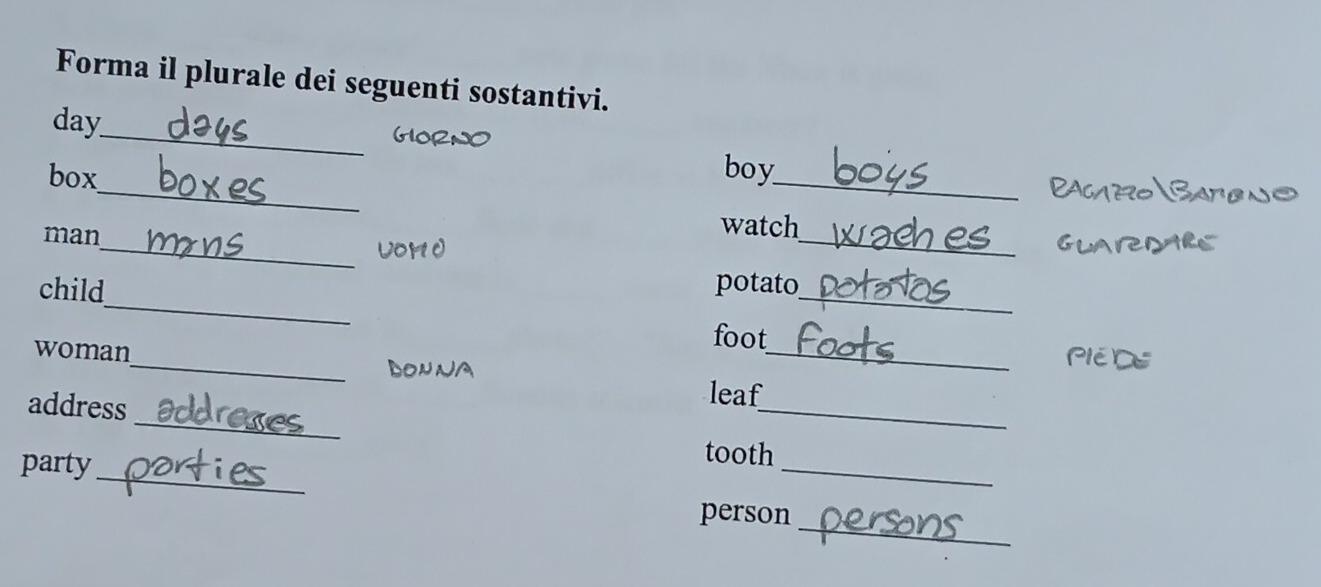 Forma il plurale dei seguenti sostantivi.
day days GIORNO
box boxes
man mans UOMO
child
woman DONNA
address addresses
party parties
boy boys RAGAZZO\BAMBINO
watch waches GUARDARE
potato potatos
foot foots PIEDE
leaf
tooth
person persons